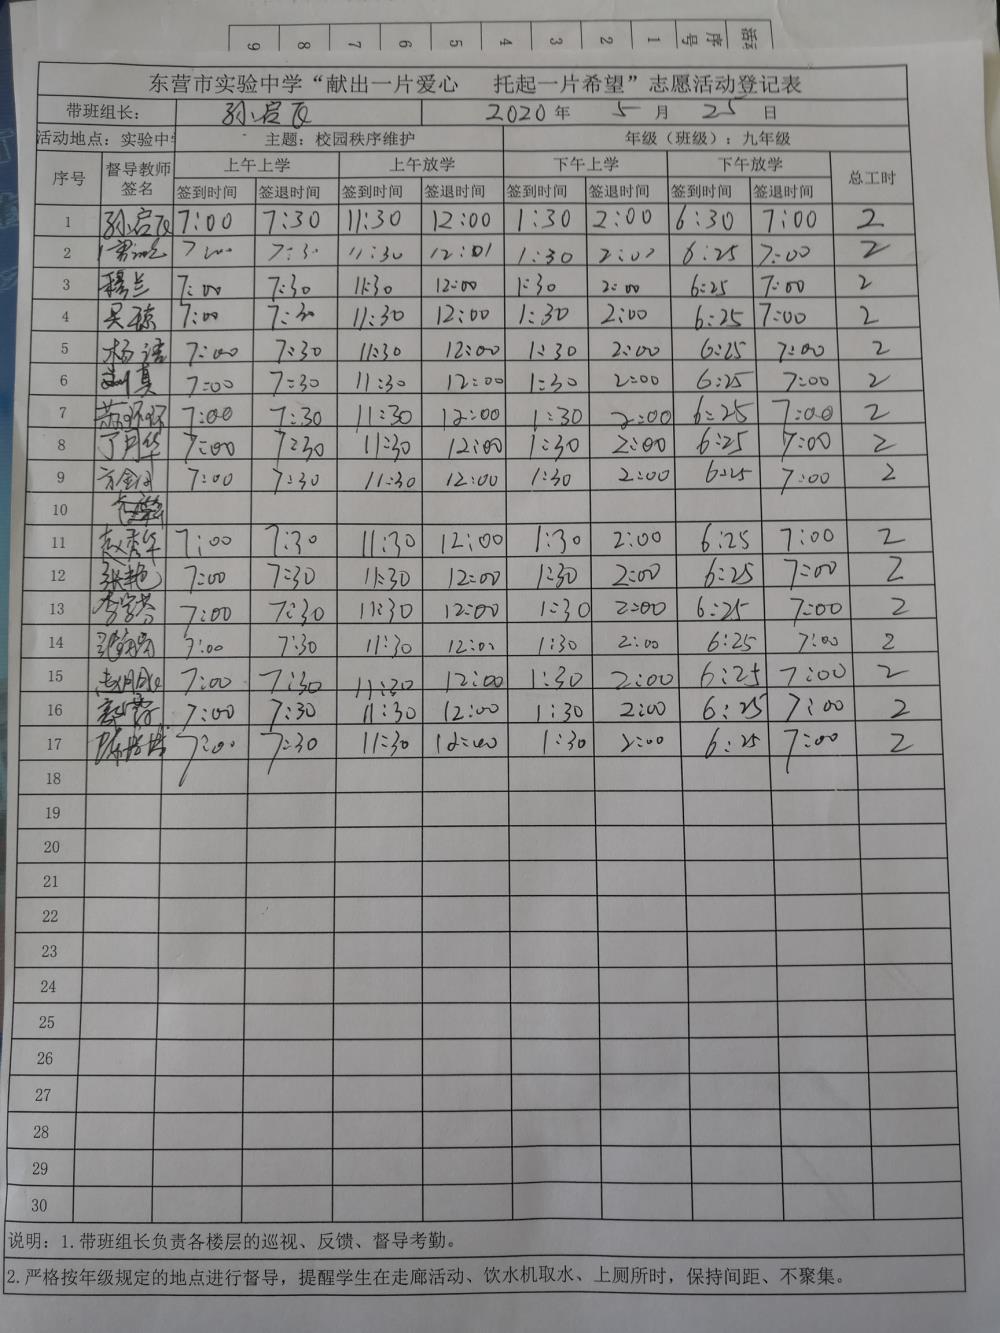 9 8 7 6 5 4 3 2 1 序号
东营市实验中学“献出一片爱心 托起一片希望”志愿活动登记表
带班组长： 2020 年 5 月 25 日
活动地点：实验中学 主题：校园秩序维护 年级（班级）：九年级
序号 督导教师签名 上午上学 上午放学 下午上学 下午放学 总工时
签到时间 签退时间 签到时间 签退时间 签到时间 签退时间 签到时间 签退时间
1 7:00 7:30 11:30 12:00 1:30 2:00 6:30 7:00 2
2 7:00 7:30 11:30 12:01 1:30 2:00 6:25 7:00 2
3 穆兰 7:00 7:30 11:30 12:00 1:30 2:00 6:25 7:00 2
4 吴琼 7:00 7:30 11:30 12:00 1:30 2:00 6:25 7:00 2
5 杨洁 7:00 7:30 11:30 12:00 1:30 2:00 6:25 7:00 2
6 7:00 7:30 11:30 12:00 1:30 2:00 6:25 7:00 2
7 苏环环 7:00 7:30 11:30 12:00 1:30 2:00 6:25 7:00 2
8 丁月华 7:00 7:30 11:30 12:00 1:30 2:00 6:25 7:00 2
9 7:00 7:30 11:30 12:00 1:30 2:00 6:25 7:00 2
10
11 赵秀华 7:00 7:30 11:30 12:00 1:30 2:00 6:25 7:00 2
12 张艳 7:00 7:30 11:30 12:00 1:30 2:00 6:25 7:00 2
13 7:00 7:30 11:30 12:00 1:30 2:00 6:25 7:00 2
14 7:00 7:30 11:30 12:00 1:30 2:00 6:25 7:00 2
15 7:00 7:30 11:30 12:00 1:30 2:00 6:25 7:00 2
16 7:00 7:30 11:30 12:00 1:30 2:00 6:25 7:00 2
17 7:00 7:30 11:30 12:00 1:30 2:00 6:25 7:00 2
18
19
20
21
22
23
24
25
26
27
28
29
30
说明：1.带班组长负责各楼层的巡视、反馈、督导考勤。
2.严格按年级规定的地点进行督导，提醒学生在走廊活动、饮水机取水、上厕所时，保持间距、不聚集。